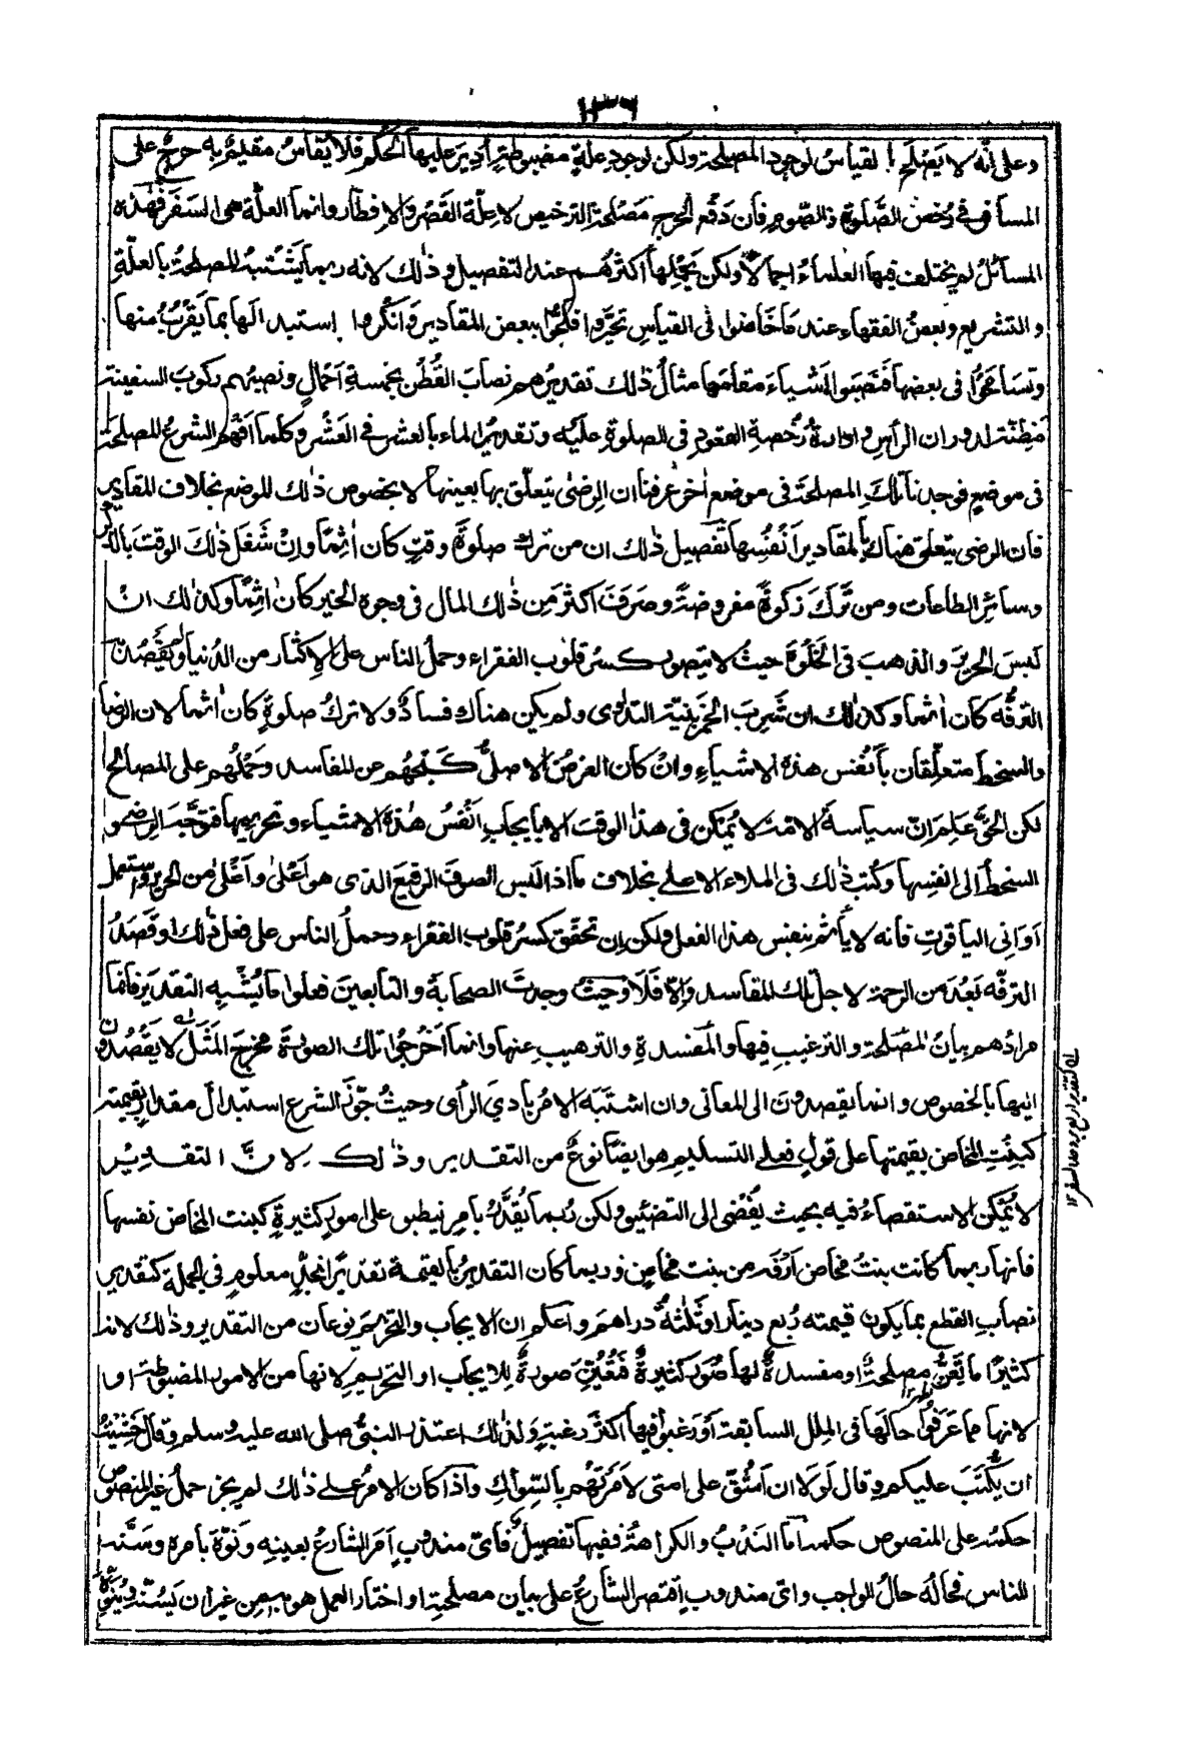 ١٣٦
وعلى انّه لا يَصْلَح القياسُ لوجود المصلحة ولكن لوجود علّةٍ مضبوطةٍ اُدِيرَ عليها الحُكم فلا يُقاسُ مقيمٌ به حرجٌ على
المسافر في رُخص الصَّلٰوة والصَّوم فان دَفْعَ الحرج مَصْلحةُ الترخيص لا علّة القَصْر والافطار وانما العلّة هى السَفَر فهٰذه
المسائلُ لم يختلف فيها العلماءُ اجمالًا ولكن يُجْمِلُها اكثرُهُم عند التفصيل وذٰلك لانه ربما يَشْتَبِهُ المصلحة بالعلّةِ
والتشريع وبعضُ الفقهاء عند ما خَاضوا فى القياس تحيَّروا فلجُّوا ببعض المقادير وَانكروا استبدالَها بما يَقْرُبُ منها
وتسَامحُوا فى بعضها فَنَصَبُوا اشياءَ مقامَها مثالُ ذٰلك تقديرُهم نصابَ القُطن بخمسةِ اَحمالٍ ونصبُهم ركوبَ السفينة
مَظِنّة لدوران الرأس وادارةُ رُخصةِ القعود فى الصلوة عليَه وتقديرُ الماء بالعشر فى العَشْر وكلما اَفهم الشرعُ المصلحَة
فى موضعٍ فوجدنا تلك المصلحة فى موضع اٰخر عرفنا ان الرضىٰ يتعلّق بها بعينها لا بخصوص ذٰلك الموضع بخلاف المقادير
فان الرضى يتعلق هناك بالمقادير اَنْفُسِها تفصيل ذٰلك ان من ترك صلوةَ وقتٍ كان اٰثِمًا وانْ شغَل ذٰلك الوقت بالذكر
وسائر الطاعات ومن تَرَكَ زكٰوةً مفروضةً وصَرفَ اكثرَ مِن ذٰلك المال فى وجوه الخير كان اٰثِمًا وكذٰلك انْ
لبسَ الحريرَ والذهبَ فى الخَلْوَة حيثُ لا يتصور كسرُ قلوب الفقراء وحملُ الناس على الاِكثار من الدُنيا ولم يَقصُد به
الترفُّه كان اٰثما وكذٰلك ان شَرِبَ الخمرَ بنيّة التداوى ولم يكن هناك فسادٌ ولا تركُ صلوةٍ كان اٰثما لان الرضا
والسخط متعلّقان بأَنْفُس هذه الاشياءِ وانْ كان الغرضُ الاصلىُّ كَبْحَهُم عن المفاسد وحَمْلَهُم على المصالح
لكن الحقَّ عَلِم انّ سياسةَ الامّة لا يُمْكن فى هذا الوقت الا بايجاب اَنْفُسِ هٰذه الاشياء وتحريمِها فتوجَّه الرضى و
السخطُ الى انفسِها وكُتب ذٰلك فى الملاء الاعلى بخلاف ما اذا لبس الصوفَ الرفيعَ الذى هو اَعْلىٰ واَغْلىٰ من الحرير واستعمل
اَوَانى الياقوتِ فانه لا يأثم بنفس هذا الفعل ولكن اِن تحقّق كسرُ قلوب الفقراء وحملُ الناس على فعل ذٰلك او قَصَدَ
الترفّه بَعُدَ من الرحمة لاجل تلك المفاسد وَالّا فَلَا وحيثُ وجدتَ الصحابة والتابعينَ فعلوا ما يُشْبِهُ التقديرَ فانما
مرادُهم بيانُ المصلحة والترغيب فيها والمَفسدةِ والترهيبِ عنها وانما اَخْرجُوا تلك الصورةَ مخرجَ المَثَل لا يَقْصُدُون
اليها بالخصوص وانما يقصدون الى المعانى وان اشتَبَهَ الامرُ بادىَ الرأى وحيثُ جوَّز الشرع استبدالَ مقدارٍ بقيمته
كبنتِ المخاض بقيمتها على قولٍ فعلى التسليم هو ايضًا نوعٌ من التقدير وذٰلك لِانَّ التقديرَ
لا يُمكن الاستقصاءُ فيه بحيث يُفْضى الى التضييق ولكن رُبما يُقدَّرُ بامرٍ ينطبق على امورٍ كثيرةٍ كبنت المخاض نفسها
فانها ربما كانت بنتُ مخاضٍ اَرْفَه من بنت مخاضٍ وربما كان التقديرُ بالقيمة تقديرًا بحدٍّ معلوم فى الجملة كتقدير
نصابِ القطع بما يكون قيمته رُبع دينار او ثَلٰثةُ دراهم واعلم ان الايجاب والتحريم نوعان من التقدير وذٰلك لانه
كثيرًا ما تَعِنُّ مصلحةٌ او مفسدةٌ لها صُوَر كثيرةٌ فتُعيَّن صورةٌ للايجاب او التحريم لانها من الامور المضبوطة او
لانها مما عَرفُوا حالَها فى المِلل السابقة اَوْ رغبوا فيها اكثرَ رغبةٍ ولذٰلك اعتذر النبىُّ صلى الله عليه وسلم وقال خَشِيْتُ
ان يُكْتَبَ عليكم وقال لَوْلَا ان اَشُقَّ على امتى لاَمَرْتُهم بالسِّواكِ واذا كان الامرُ على ذٰلك لم يجز حملُ غير المنصوص
حكمُه على المنصوص حكمُه اَما النَدْبُ والكراهةُ ففيها تفصيلٌ فاىّ مندوبٍ اَمَر الشارعُ بعينِهِ ونَوَّهَ بامره وسَنّه
للناس فحالُه حالُ الواجب واىّ مندوبٍ اقتصر الشارعُ على بيان مصلحتِه او اختار العمل هو به من غير ان يَسُنّه ويُنَوِّه